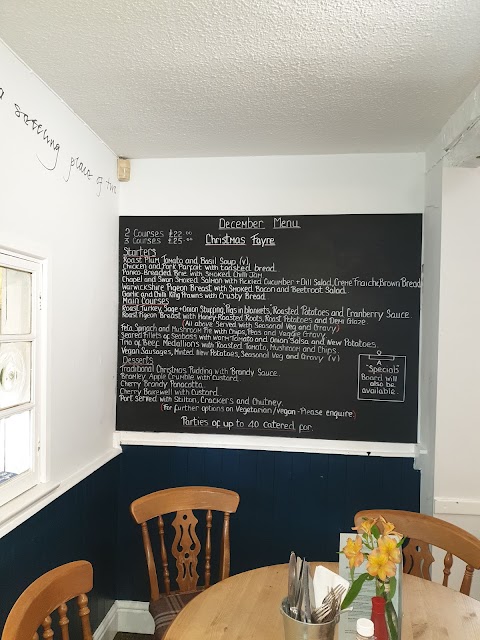 a soothing place of
December Menu
2 Courses £22.00
3 Courses £25.00
Christmas Fayre
Starters
Roast Plum Tomato and Basil Soup, (v)
Chicken and Pork Parfait with toasted bread.
Panko Breaded Brie with Smoked Chilli Jam
Chapel and Swan Smoked Salmon with Pickled Cucumber + Dill Salad, Creme Fraiche, Brown Bread
Warwickshire Pigeon Breast with Smoked Bacon and Beetroot Salad.
Garlic and Chilli King Prawns with Crusty Bread
Main Courses
Roast Turkey, Sage + Onion Stuffing, 'Pigs in blankets', Roasted Potatoes and Cranberry Sauce
Roast Pigeon Breast with Honey Roasted Roots, Roast Potatoes and Demi Glaze
(All above served with Seasonal Veg and Gravy)
Feta, Spinach and Mushroom Pie with Chips, Peas and Veggie Gravy
Seared Fillets of Seabass with warm Tomato and Onion Salsa and New Potatoes.
Trio of Beef Medallions with Roasted Tomato, Mushroom and Chips
Vegan Sausages, Minted New Potatoes, Seasonal Veg and Gravy (v)
Desserts
Traditional Christmas Pudding with Brandy Sauce
Bramley Apple Crumble with Custard
Cherry Brandy Panacotta
Cherry Bakewell with Custard.
Port served with Stilton, Crackers and Chutney.
(For further options on Vegetarian/vegan - Please enquire)
Parties of up to 40 catered for.
A
"Specials"
Board will
also be
available.